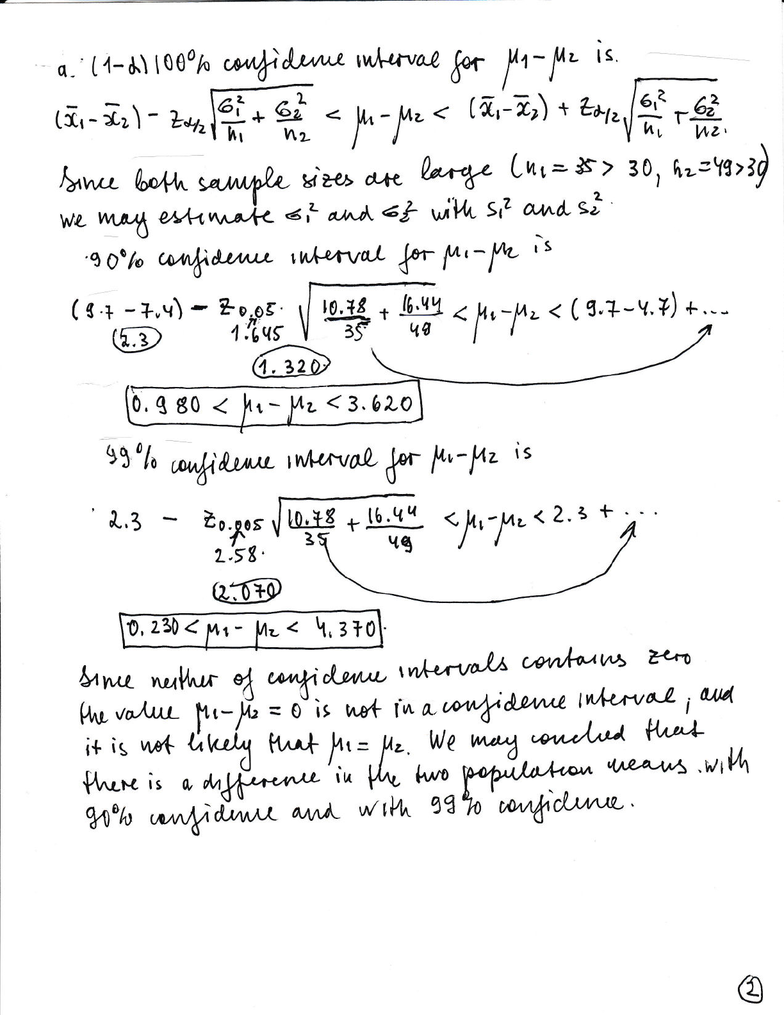 a. (1-α)100% confidence interval for μ1-μ2 is.
(x̄1-x̄2) - Zα/2 √(σ1²/n1 + σ2²/n2) < μ1-μ2 < (x̄1-x̄2) + Zα/2 √(σ1²/n1 + σ2²/n2).
Since both sample sizes are large (n1=35 > 30, n2=49>30)
we may estimate σ1² and σ2² with s1² and s2².
90% confidence interval for μ1-μ2 is
(9.7-7.4) - Z0.05 · √(10.78/35 + 16.44/49) < μ1-μ2 < (9.7-4.7) + ...
2.3 1.645
1.320
0.980 < μ1-μ2 < 3.620
99% confidence interval for μ1-μ2 is
2.3 - Z0.005 √(10.78/35 + 16.44/49) < μ1-μ2 < 2.3 + ...
2.58.
2.070
0.230 < μ1-μ2 < 4.370.
Since neither of confidence intervals contains zero
the value μ1-μ2 = 0 is not in a confidence interval, and
it is not likely that μ1 = μ2. We may conclud that
there is a difference in the two population means. with
90% confidence and with 99% confidence.
2